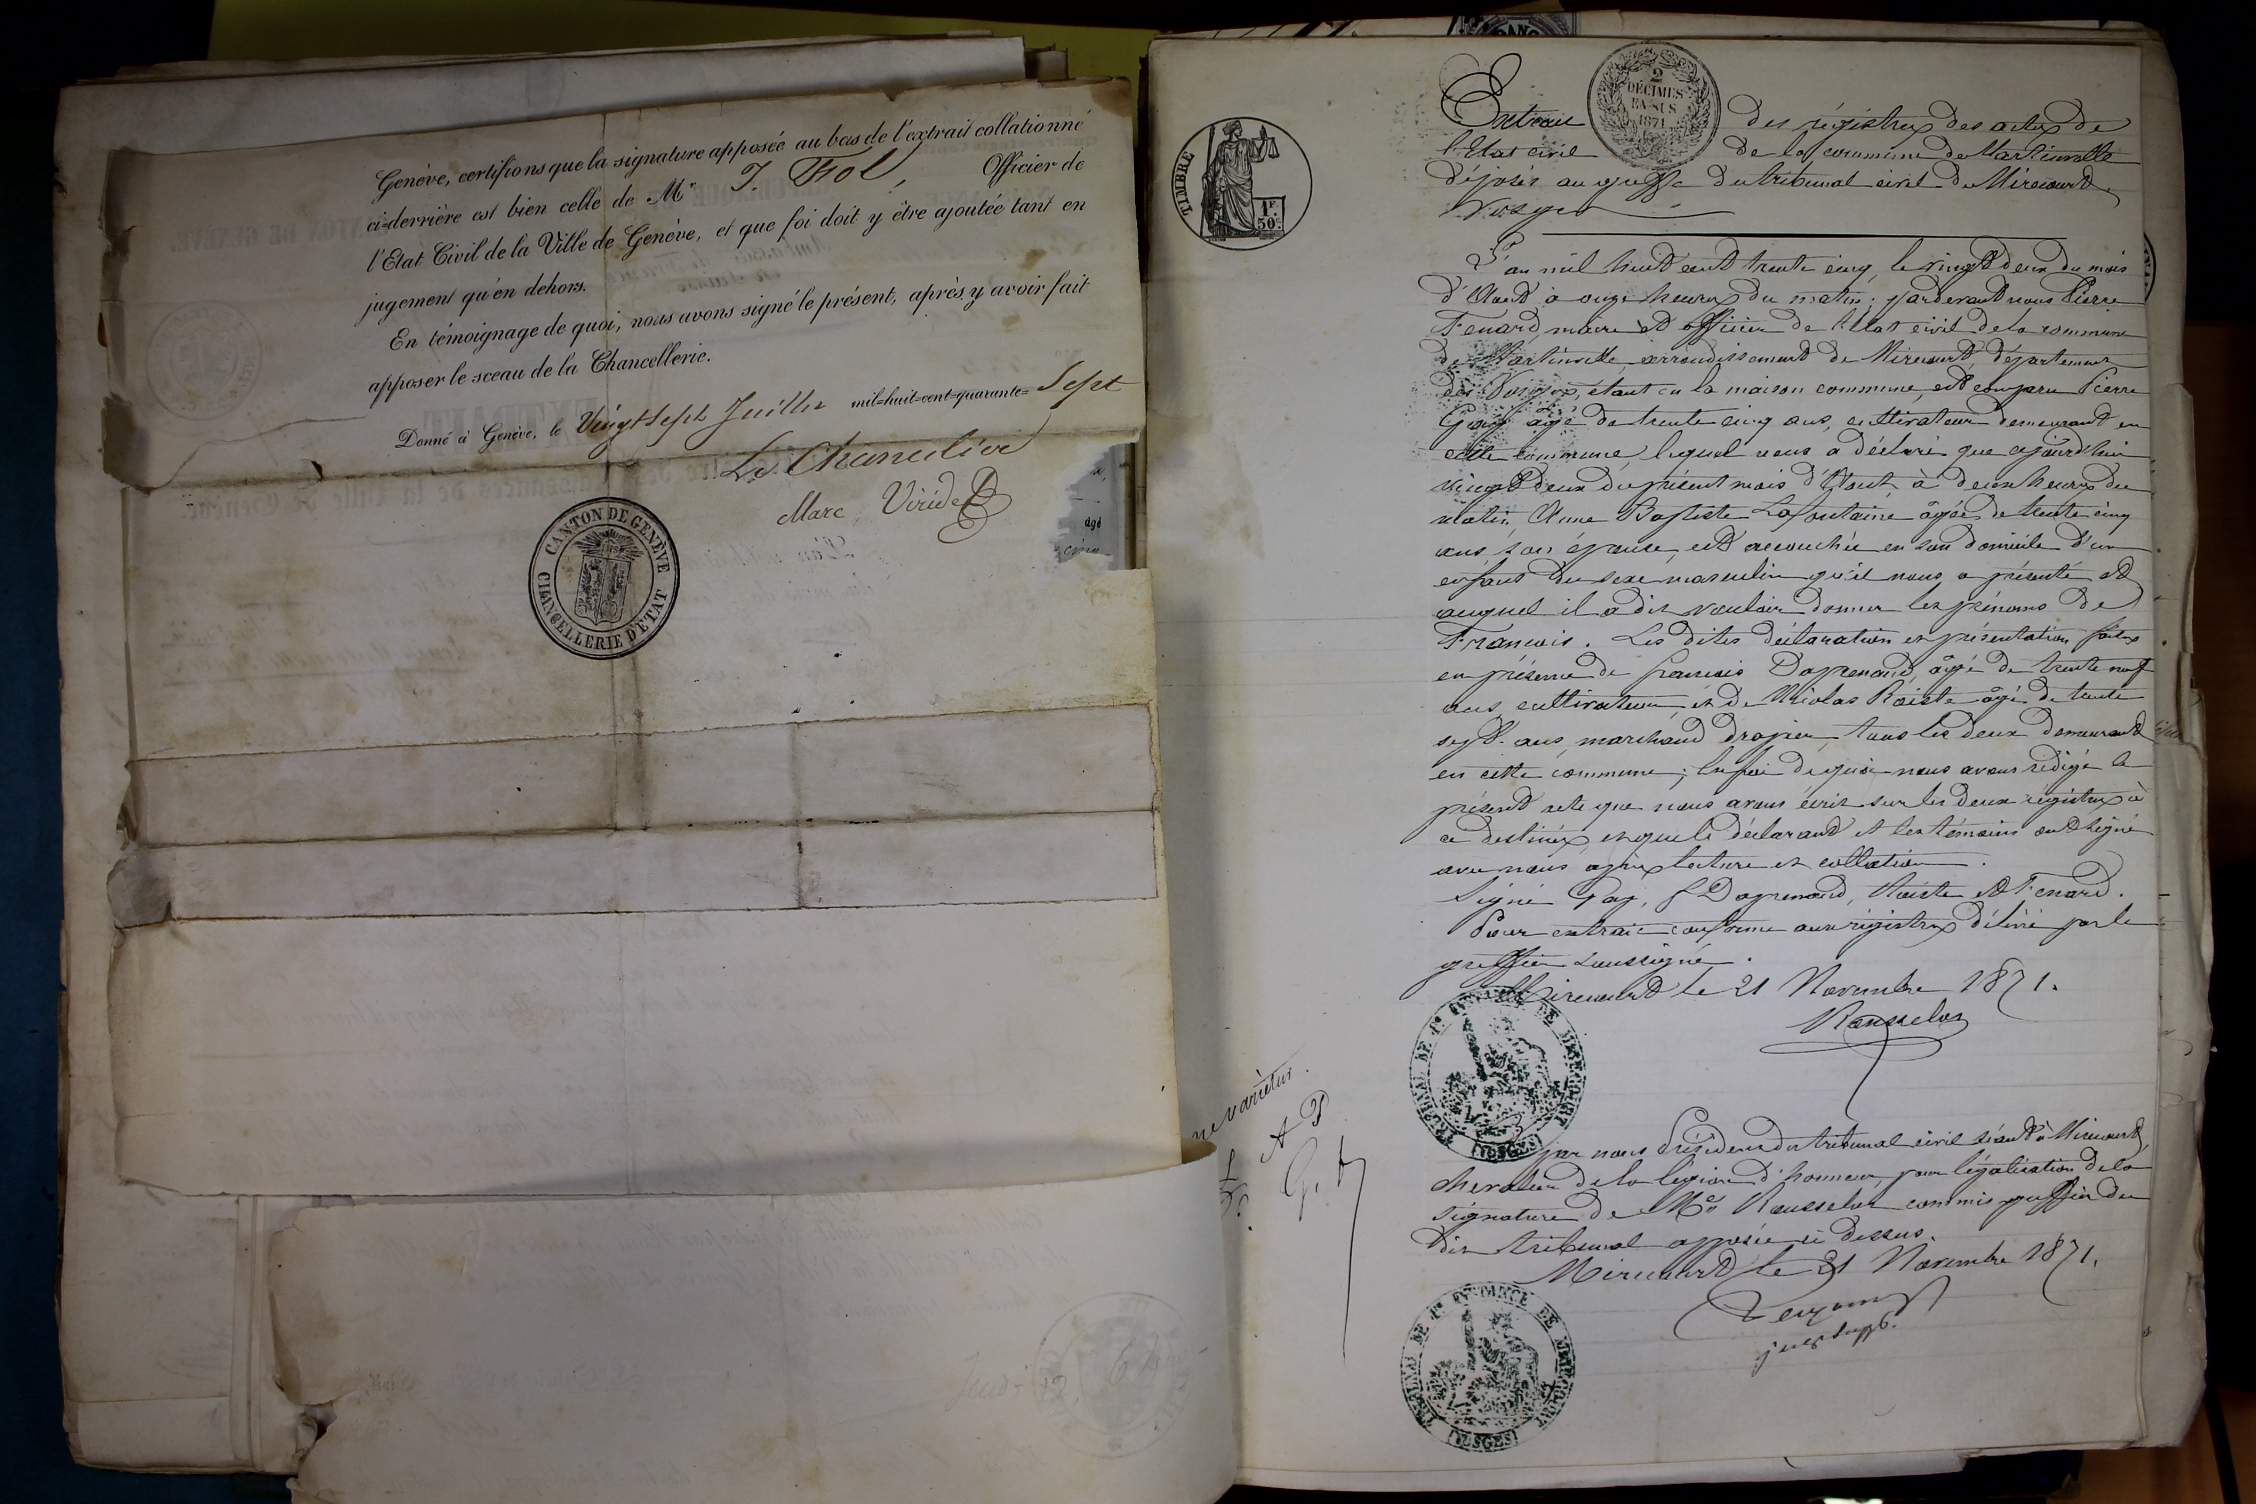 Genève, certifions que la signature apposée au bas de l'extrait collationné
ci-derrière est bien celle de Mr J. Fol, Officier de
l'Etat Civil de la Ville de Genève, et que foi doit y être ajoutée tant en
jugement qu'en dehors.
En témoignage de quoi, nous avons signé le présent, après y avoir fait
apposer le sceau de la Chancellerie.
Donné à Genève, le Vingt sept Juillet mil-huit-cent-quarante- Sept
Le Chancelier
Marc Viridet
CANTON DE GENÈVE
CHANCELLERIE D'ÉTAT
TIMBRE
1F.
50c.
2
DÉCIMES
EN SUS
1871
Extrait des régistres des actes de
l'Etat civil de la commune de Martinvelle
déposés au greffe du tribunal civil de Mirecourt
Vosges
L'an mil huit cent trente cinq, le vingt deux du mois
d'Aout à onze heures du matin; pardevant nous Pierre
Fenard, maire et officier de l'Etat civil de la commune
de Martinvelle, arrondissement de Mirecourt, département
des Vosges, étant en la maison commune, est comparu Pierre
Gay agé de trente cinq ans, cultivateur demeurant en
cette commune, lequel nous a déclaré que aujourd'hui
vingt deux du présent mois d'Aout, à deux heures du
matin, Anne Baptiste Lafontaine âgée de trente cinq
ans, son épouse, est accouchée en son domicile d'un
enfant du sexe masculin qu'il nous a présenté et
auquel il a dit vouloir donner les prénoms de
François. Les dites déclaration et présentation faites
en présence de françois Daprenaud, âgé de trente neuf
ans, cultivateur, et de Nicolas Roiste âgé de trente
sept ans, marchand drapier, tous les deux demeurant
en cette commune; En foi de quoi nous avons rédigé le
présent acte que nous avons écrit sur les deux régistres à
ce destinés, et que le déclarant et les témoins ont signé
avec nous après lecture et collation.
Signé Gay, f Daprenaud, Roiste et Fenard.
Pour extrait conforme aux régistres délivré par le
greffier soussigné.
Mirecourt le 21 Novembre 1871.
Rousselot
TRIBUNAL DE 1re INSTANCE DE MIRECOURT
(VOSGES)
ne varietur.
A P
G.
par nous Président du tribunal civil séant à Mirecourt,
chevalier de la légion d'honneur, pour légalisation de la
signature de Me Rousselot commis greffier du
dit tribunal apposée ci dessus.
Mirecourt le 21 Novembre 1871.
juge suppt.
TRIBUNAL DE 1re INSTANCE DE MIRECOURT
(VOSGES)